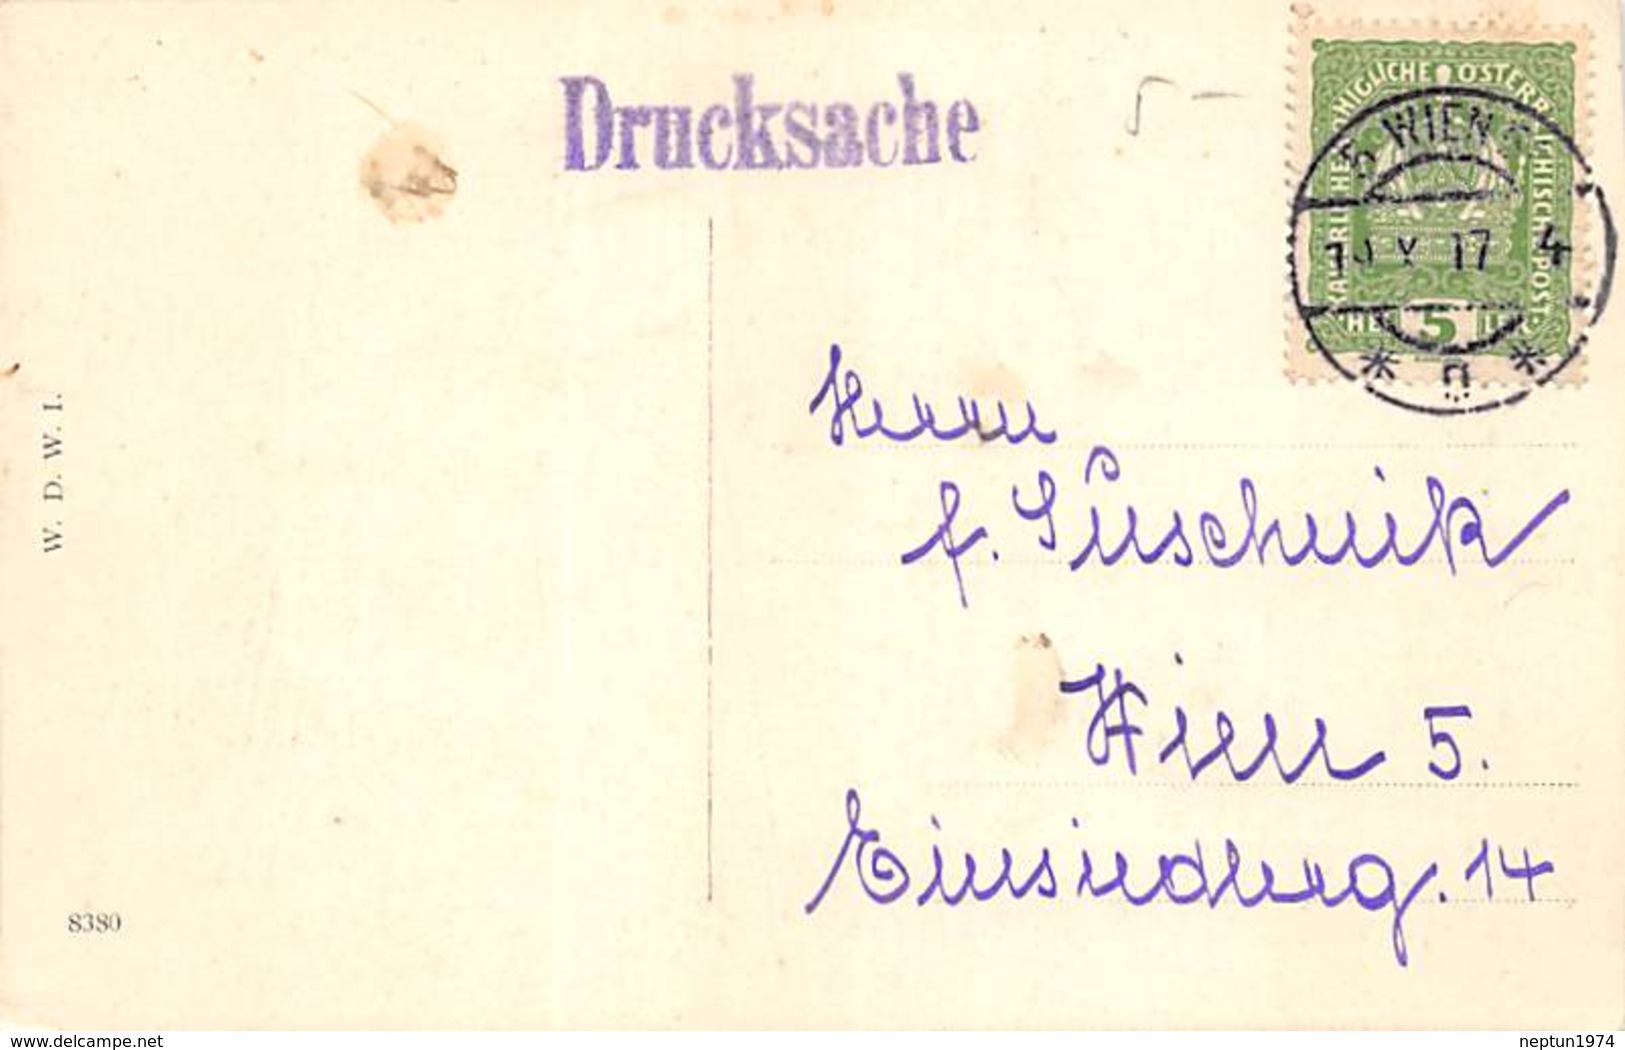 Drucksache
5 -
KAISERLICHE KÖNIGLICHE ÖSTERREICHISCHE POST
5 WIEN
X 17 4
* *
HELLER 5
Herrn
W. D. W. I.
Wien 5.
Einsiedlerg. 14
8380
www.delcampe.net
neptun1974